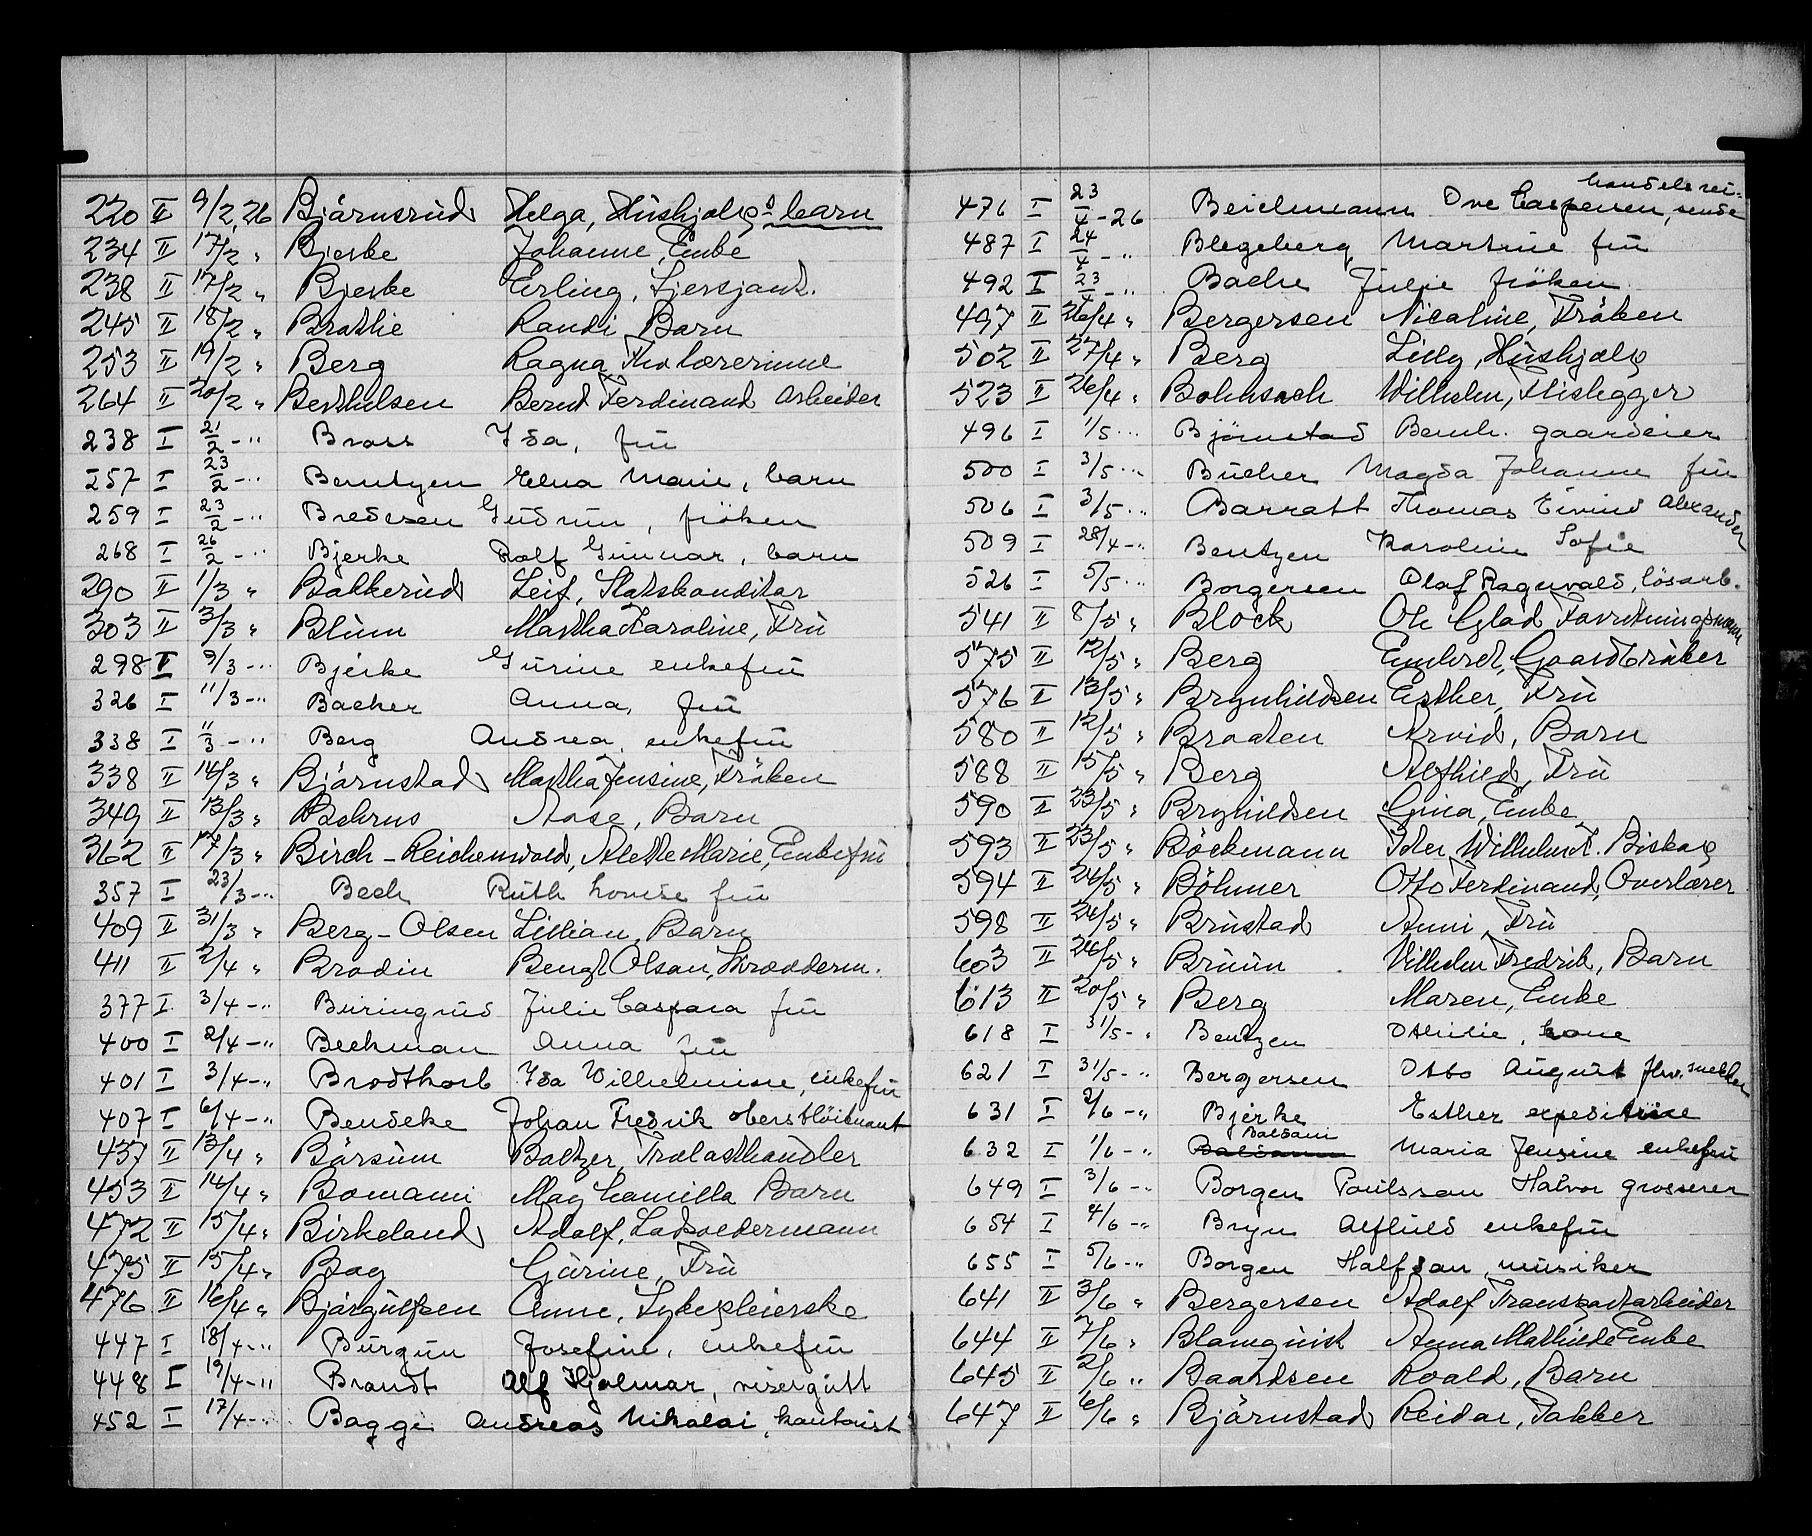 220 II 9/2, 26 Bjärnsrud Helga, Hushjælps barn
234 II 17/2 " Bjerke Johanne, Enke
238 II 17/2 " Bjerke Erling,
245 II 18/2 " Brathe Randi, Barn
253 II 19/2 " Berg Ragna, lærerinne
264 II 20/2 " Berthelsen Bernt Ferdinand Arbeider
238 I 21/2 - " Brass Ida, fru
257 I 23/2 - " Berntzen Elna Marie, barn
259 I 23/2 - " Bredesen Gudrun, fröken
268 I 26/2 - " Bjerke Rolf Gunnar, barn
290 II 1/3 " Bakkerud Leif,
303 II 3/3 " Blum Martha Karoline, Fru
298 I 9/3 - " Bjerke Gurine enkefru
326 I 11/3 - " Backer Anna, fru
338 I 11/3 - " Berg Andrea, enkefru
338 II 14/3 " Bjärnstad Martha Jensine, Fröken
349 II 13/3 " Behrns Aase, Barn
362 II 17/3 " Birch-Reichenwald, Alette Marie, Enkefru
357 I 23/3 - " Bech Ruth Louise fru
409 II 31/3 " Berg-Olsen Lillian, Barn
411 II 2/4 " Brodin Bengt Olsan, Skrædderm.
377 I 3/4 - " Buringrud Julie Caspara fru
400 I 2/4 - " Beckman Anna fru
401 I 3/4 - " Brodtkorb Ida Wilhelmine, enkefru
407 I 6/4 - " Bendeke Johan Fredrik oberstlöitnant
437 II 13/4 " Bärsum Baltzer, Trælasthandler
453 II 14/4 " Bomann May Camilla Barn
472 II 15/4 " Birkeland Adolf,
475 II 15/4 " Bay Gjärine, Fru
476 II 16/4 " Bjärgulfsen Anne, Sykepleierske
447 I 18/4 - " Burgun Josefine, enkefru
448 I 19/4 - " Brandt Alf Hjalmar, visergutt
452 I 17/4 - " Bagge Andreas Nikolai, kontorist
476 I 23/4 - 26 Beichmann Ove Caspersen, handelsrei-sende
487 I 24/4 - " Blegeberg, Martine fru
492 I 23/4 - " Bache Julie fröken
497 II 26/4 " Bergersen Nicoline, Fröken
502 II 27/4 " Berg Lilly, Hushjælp
523 II 26/4 " Bohnsach Wilhelm, Flislegger
496 I 1/5 - " Björnstad Bernh. gaardeier
500 I 3/5 - " Bucher Magda Johanne fru
506 I 3/5 - " Barratt Thomas Eivind Alexander
509 I 28/4 - " Bentzen Karoline Sofie
526 I 5/5 - " Borgersen Olaf Ragnvald, lösarb.
541 II 8/5 " Block Ole Glad Forretningsmann
575 II 12/5 " Berg Embret, Gaardbruker
576 II 13/5 " Brynhildsen Esther, Fru
580 II 12/5 " Braaten Arvid, Barn
588 II 15/5 " Berg Alfhild, Fru
590 II 23/5 " Bryhildsen Gina, Enke
593 II 23/5 " Böckmann Peter Wilhelm K. Biskop
594 II 24/5 " Böhmer Otto Ferdinand, Overlærer
598 II 24/5 " Brustad Anni, Fru
603 II 26/5 " Bruun Vilhelm Fredrik, Barn
613 II 20/5 " Berg Maren, Enke
618 I 31/5 - " Bentzen Othilie, kone
621 I 31/5 - " Bergersen Otto August fhv. snekker
631 I 2/6 - " Bjerke Esther expeditrise
632 I 1/6 - " Balsani Maria Jensine enkefru
649 I 3/6 - " Borgen Paulsson Halvor grosserer
654 I 4/6 - " Bryn Alfhild enkefru
655 I 5/6 - " Borgen Halfdan, musiker
641 II 3/6 " Bergersen Adolf Transportarbeider
644 II 7/6 " Blomquist Anna Mathilde Enke
645 II 2/6 " Baardsen Roald, Barn
647 II 6/6 " Bjärnstad Reidar, Pakker